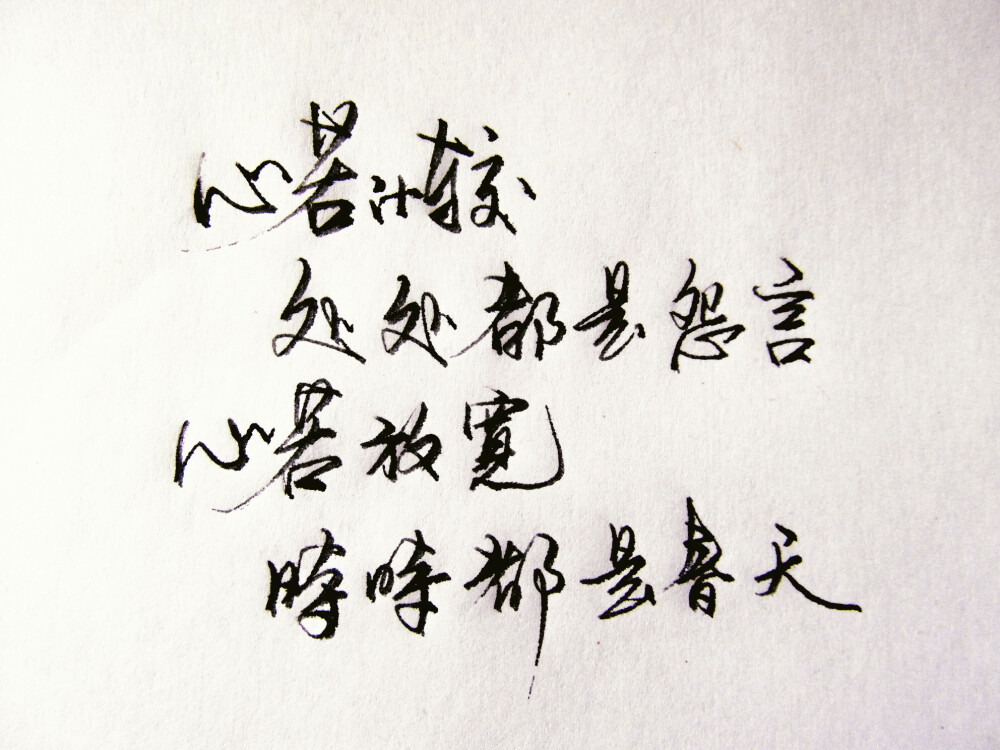 心若计较
处处都是怨言
心若放寬
時時都是春天